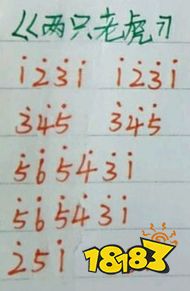 《两只老虎》
1̇ 2̇ 3̇ 1̇ 1̇ 2̇ 3̇ 1̇
3̇ 4̇ 5̇ 3̇ 4̇ 5̇
5̇ 6̇ 5̇ 4̇ 3̇ 1̇
5̇ 6̇ 5̇ 4̇ 3̇ 1̇
2̇ 5 1̇
18183